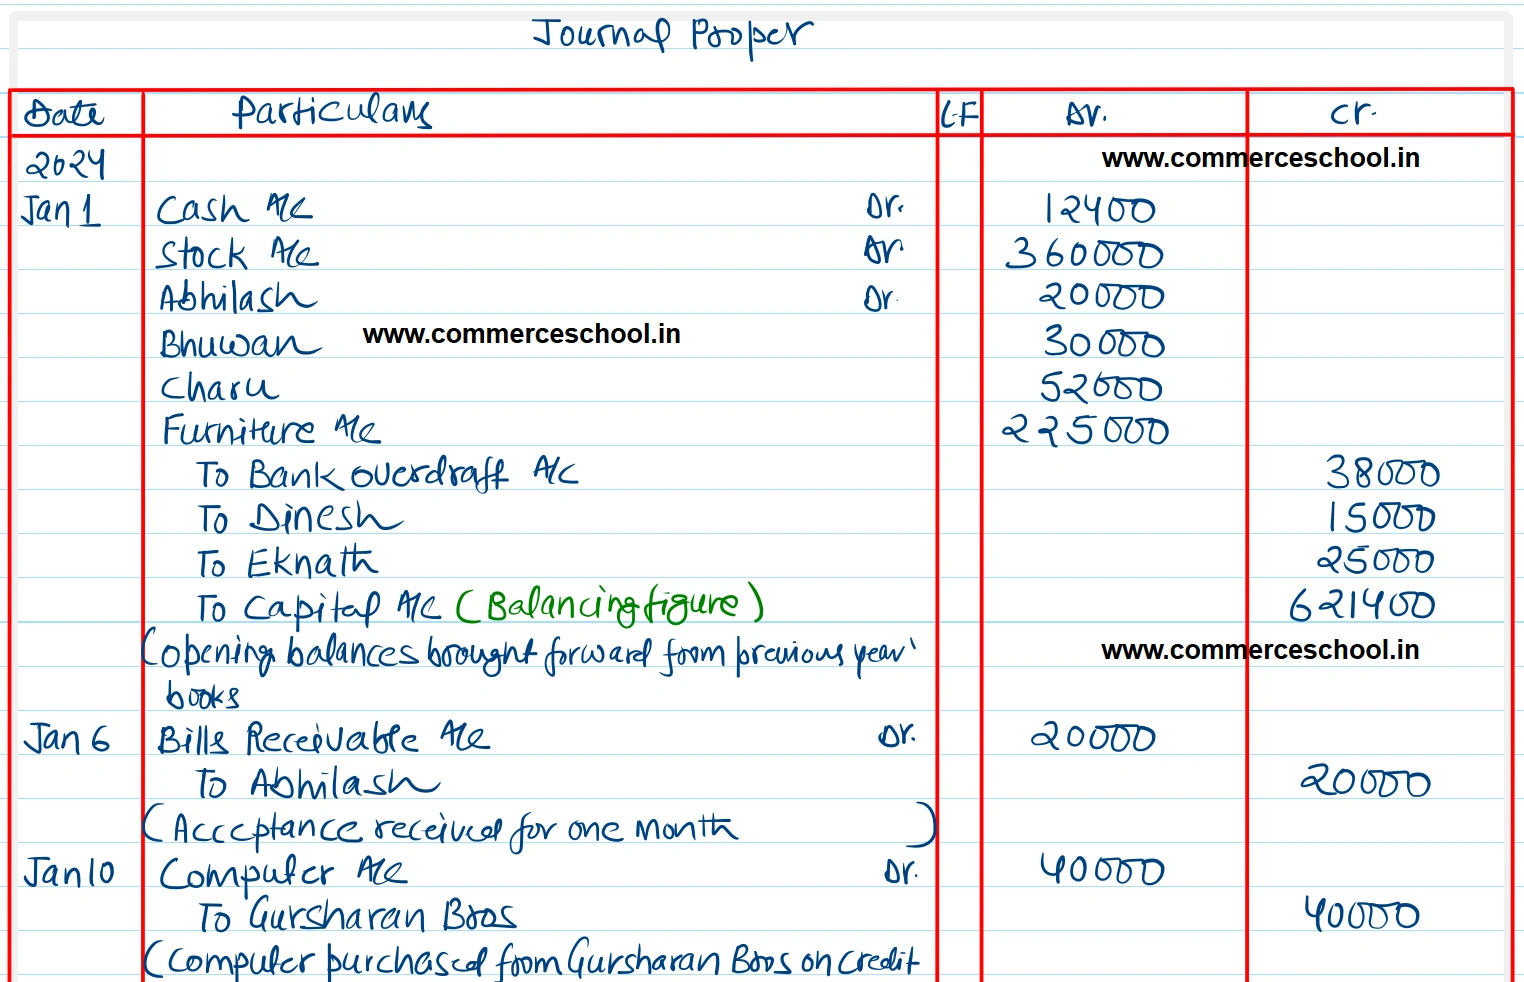 Journal Proper
Date Particulars L.F Dr. Cr.
2024 www.commerceschool.in
Jan 1 Cash A/c Dr. 12400
Stock A/c Dr. 360000
Abhilash Dr. 20000
Bhuwan www.commerceschool.in 30000
Charu 52000
Furniture A/c 225000
To Bank overdraft A/c 38000
To Dinesh 15000
To Eknath 25000
To Capital A/c (Balancing figure) 621400
(opening balances brought forward from previous year' www.commerceschool.in
books
Jan 6 Bills Receivable A/c Dr. 20000
To Abhilash 20000
(Acceptance received for one month)
Jan 10 Computer A/c Dr. 40000
To Gursharan Bros 40000
(Computer purchased from Gursharan Bros on credit